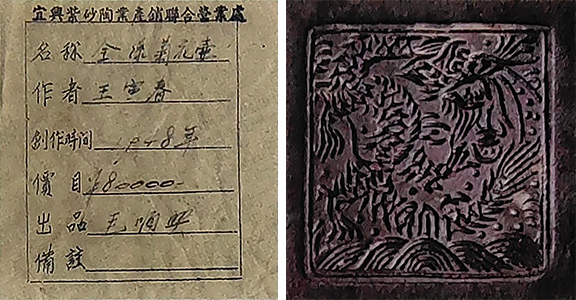 宜興紫砂陶業產銷聯合營業處
名称 全
作者 王寅春
創作時間 1948年
價目 ¥80000-
出品 毛順
備註